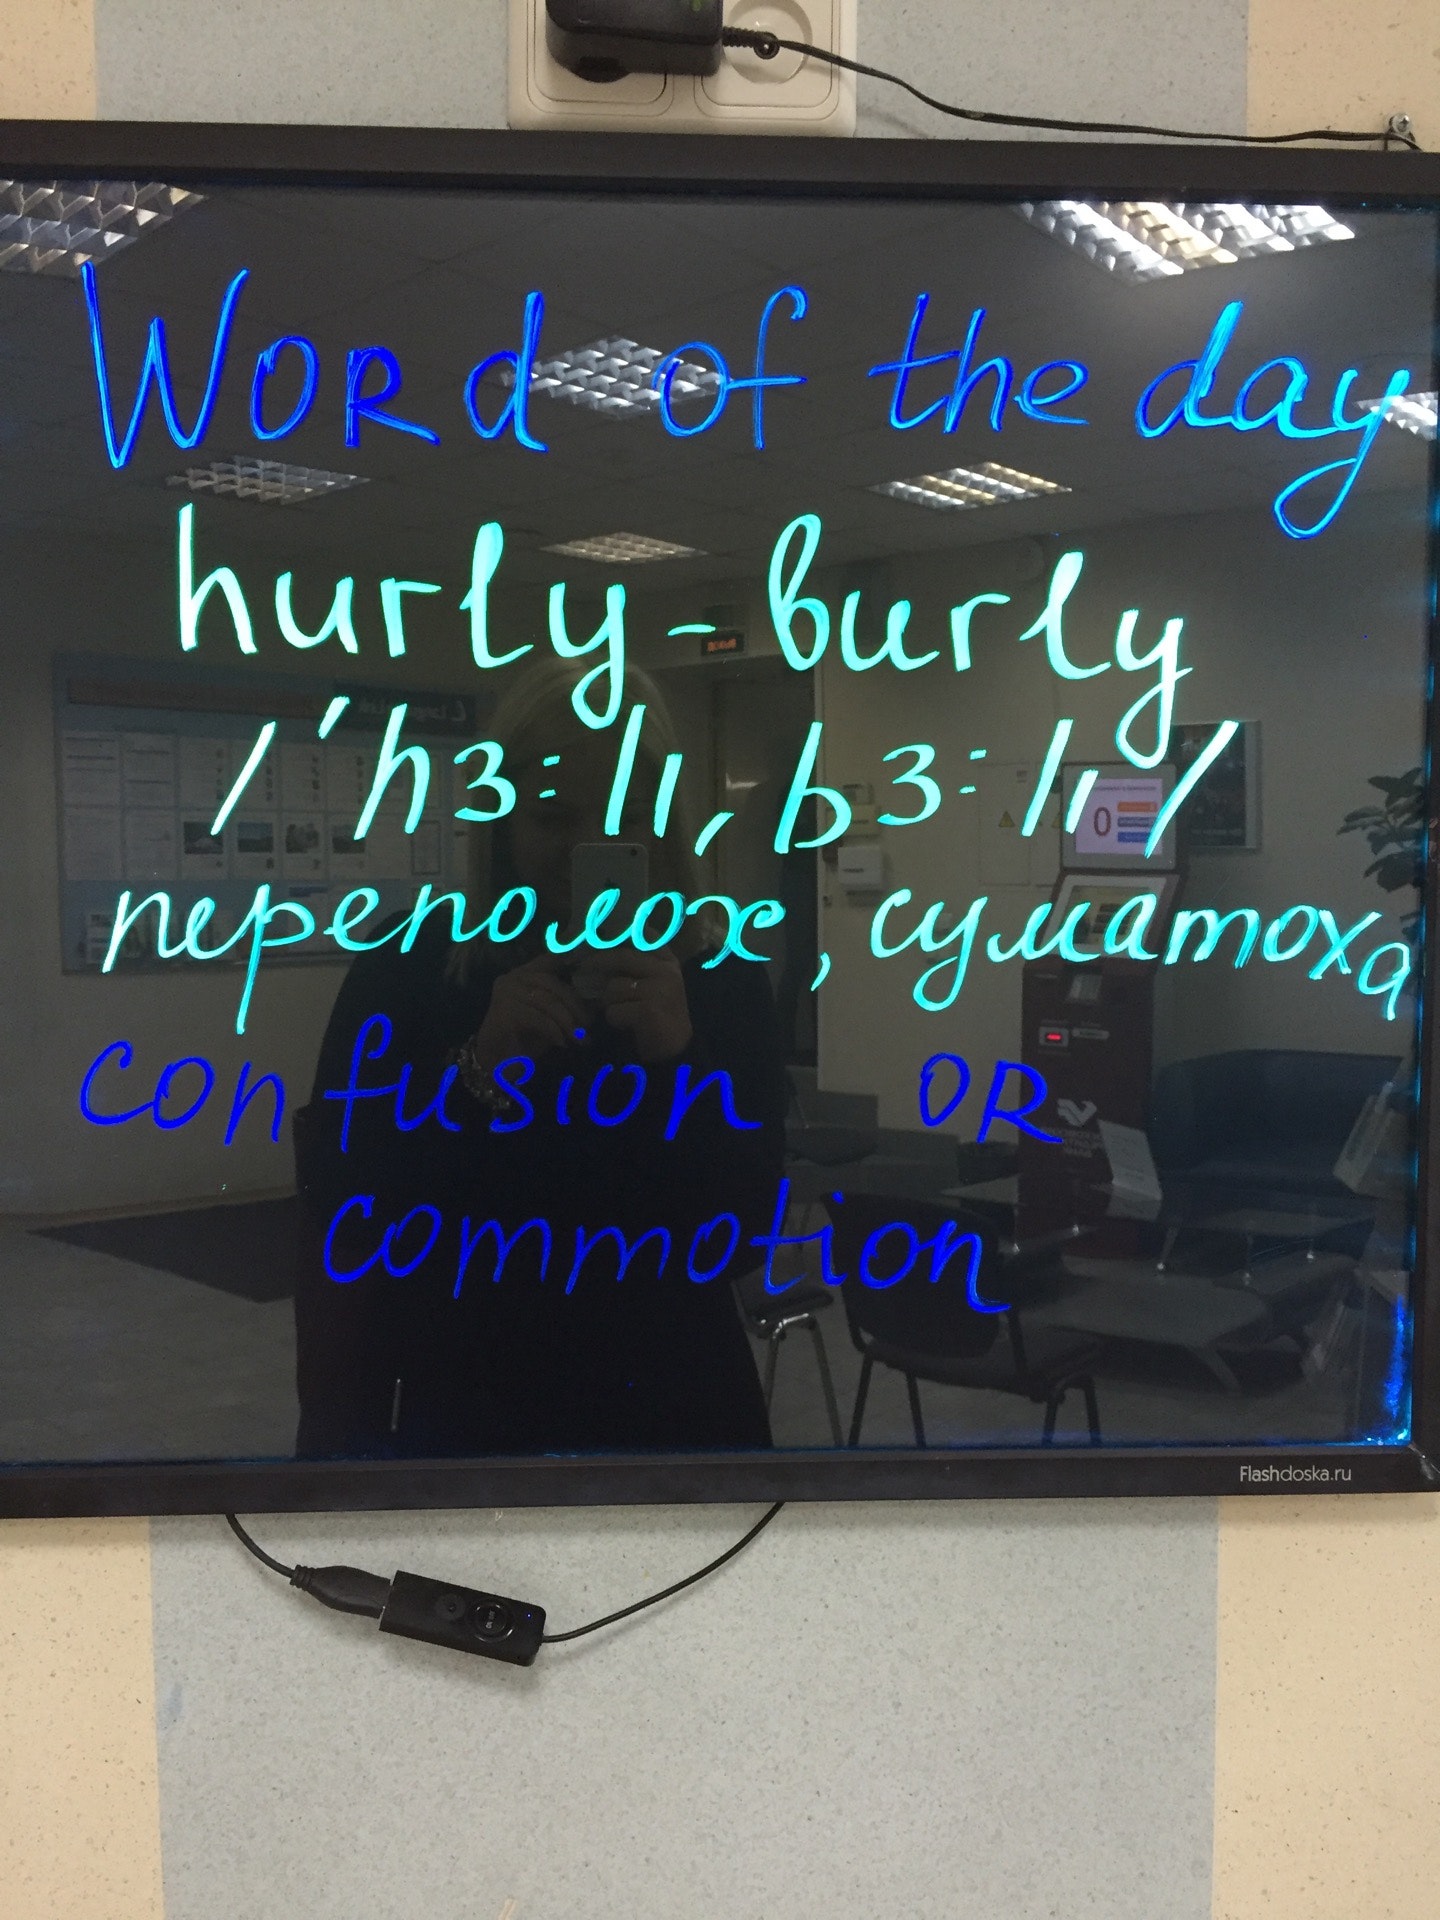 Word of the day
hurly-burly
/'hɜ:lɪ,bɜ:lɪ/
переполох, суматоха
confusion OR
commotion
Flashdoska.ru